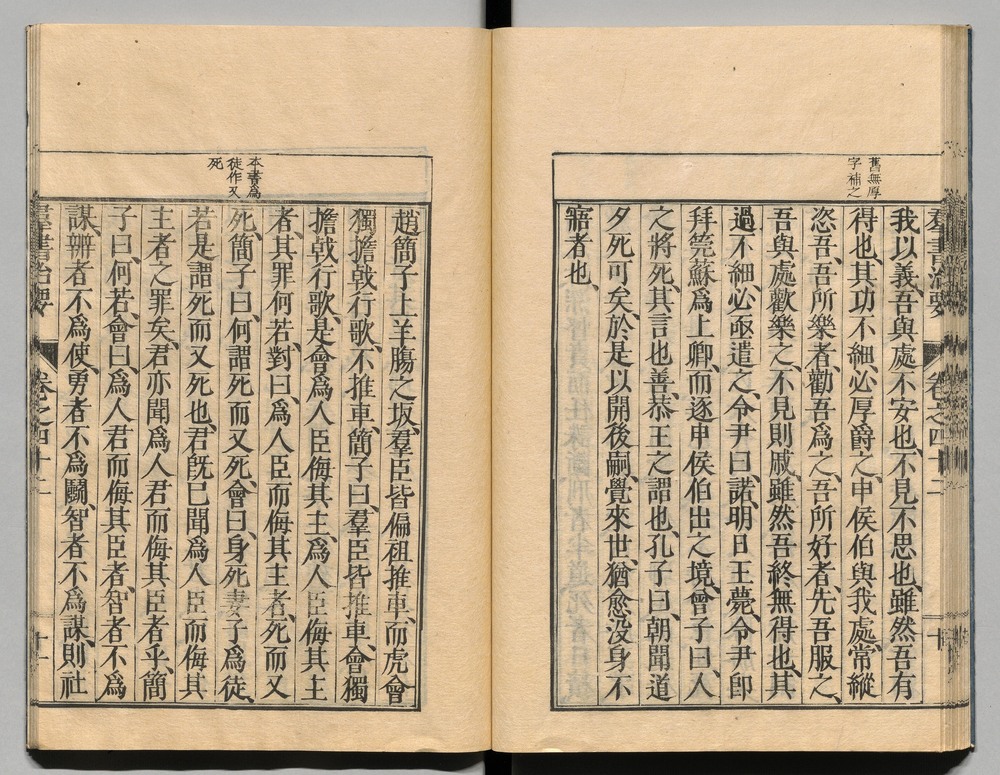 舊無厚
字補之
我以義、吾與處不安也、不見不思也、雖然吾有
得也、其功不細、必厚爵之、申侯伯與我處、常縱
恣吾、吾所樂者、勸吾爲之、吾所好者、先吾服之、
吾與處歡樂之、不見則戚、雖然吾終無得也、其
過不細、必亟遣之、令尹曰、諾、明日王薨、令尹卽
拜筦蘇爲上卿、而逐申侯伯出之境、曾子曰、人
之將死、其言也善、恭王之謂也、孔子曰、朝聞道
夕死可矣、於是以開後嗣、覺來世、猶愈没身不
寤者也、
本書爲
徒作又
死
趙簡子上羊膓之坂、羣臣皆偏袒推車、而虎會
獨擔戟行歌、不推車、簡子曰、羣臣皆推車、會獨
擔戟行歌、是會爲人臣侮其主、爲人臣侮其主
者、其罪何若、對曰、爲人臣而侮其主者、死而又
死、簡子曰、何謂死而又死、會曰、身死妻子爲徒、
若是謂死而又死也、君旣已聞爲人臣而侮其
主者之罪矣、君亦聞爲人君而侮其臣者乎、簡
子曰、何若、會曰、爲人君而侮其臣者、智者不爲
謀、辨者不爲使、勇者不爲鬭、智者不爲謀、則社
羣書治要
卷之四十二
十一